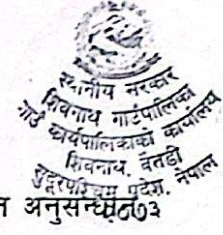 स्थानीय सरकार
शिवनाथ गाउँपालिका
गाउँ कार्यपालिकाको कार्यालय
शिवनाथ, बैतडी
सुदूरपश्चिम प्रदेश, नेपाल
त अनुसन्धान
२०७३